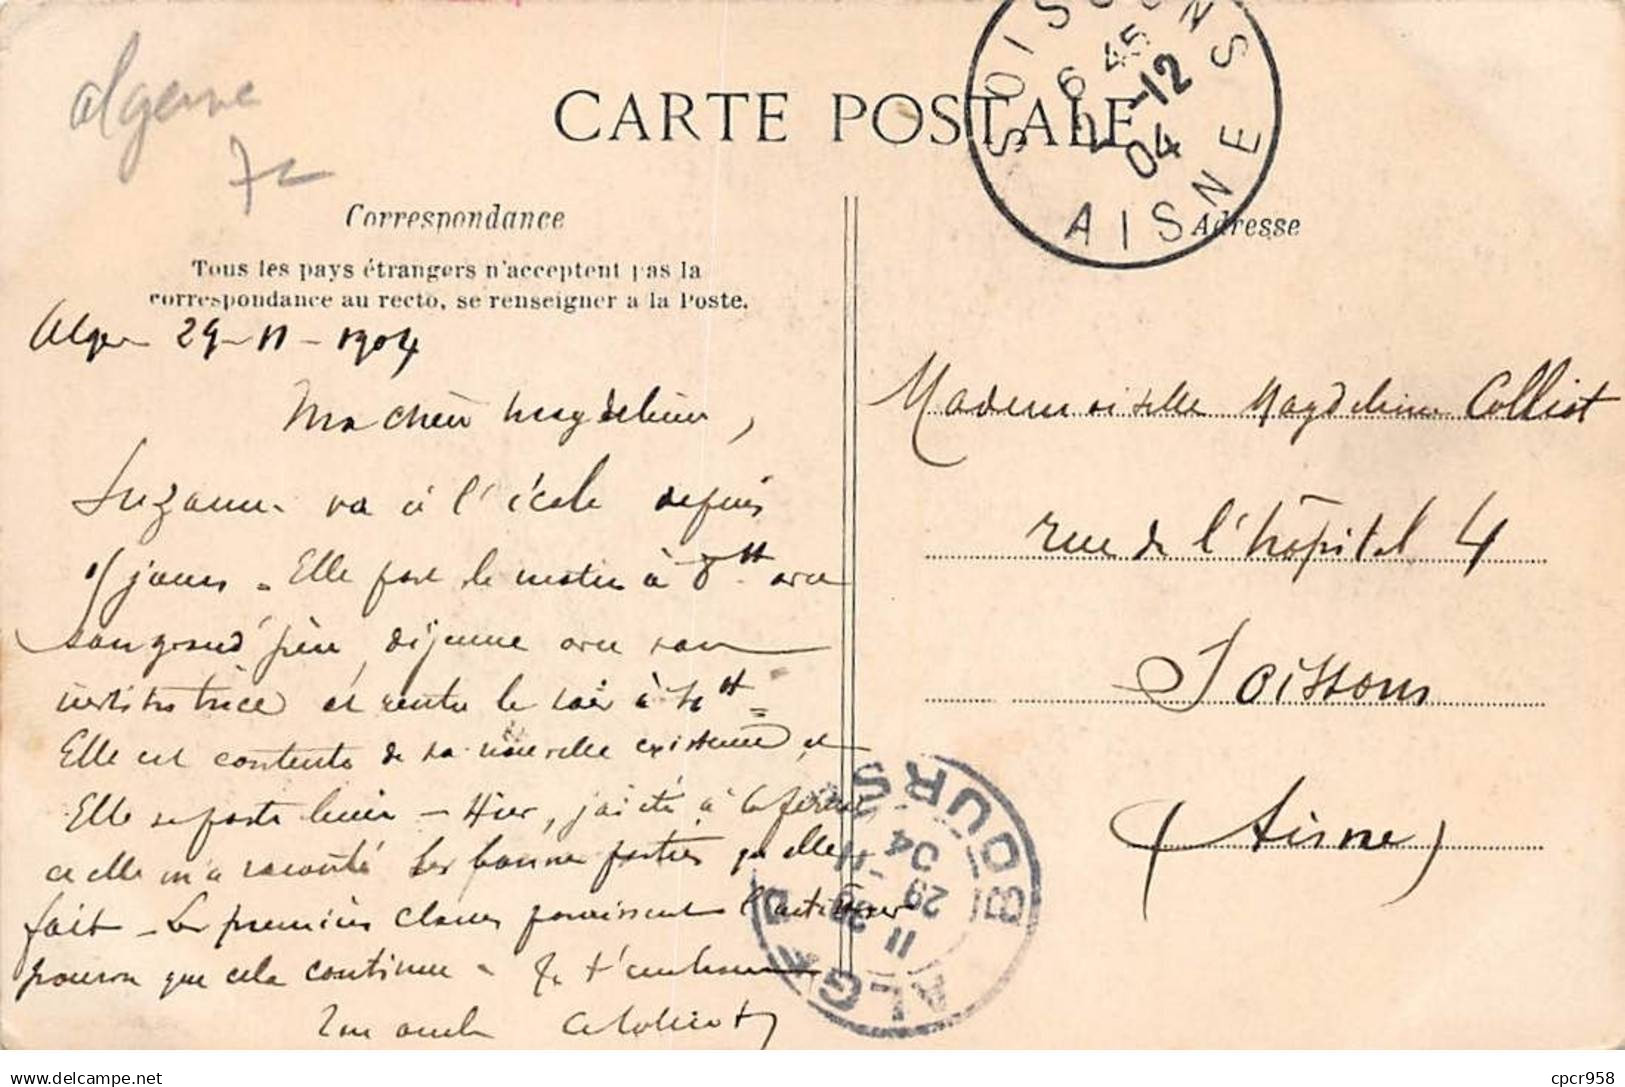 algerie
72
CARTE POSTALE
SOISSONS
6 45
2-12
04
AISNE
Correspondance
Adresse
Tous les pays étrangers n'acceptent pas la
correspondance au recto, se renseigner a la Poste.
Alger 29-11-1904
Ma chère Magdeleine,
Suzanne va à l'école depuis
jours. Elle part le matin à 8h avec
son grand'père, déjeune avec son
institutrice et rentre le soir à 4h =
Elle est contente de sa nouvelle existence et
Elle se porte bien - Hier, j'ai été à la ferme
et elle m'a raconté les bonnes parties qu'elle
fait - Les premières classes pourrissent
pourvu que cela continue. Je t'embrasse
Ton oncle A Colliot
Mademoiselle Magdeleine Colliot
rue de l'hôpital 4
Soissons
(Aisne)
ALGER
BOURSE
11
29 -11
04
cpcr958